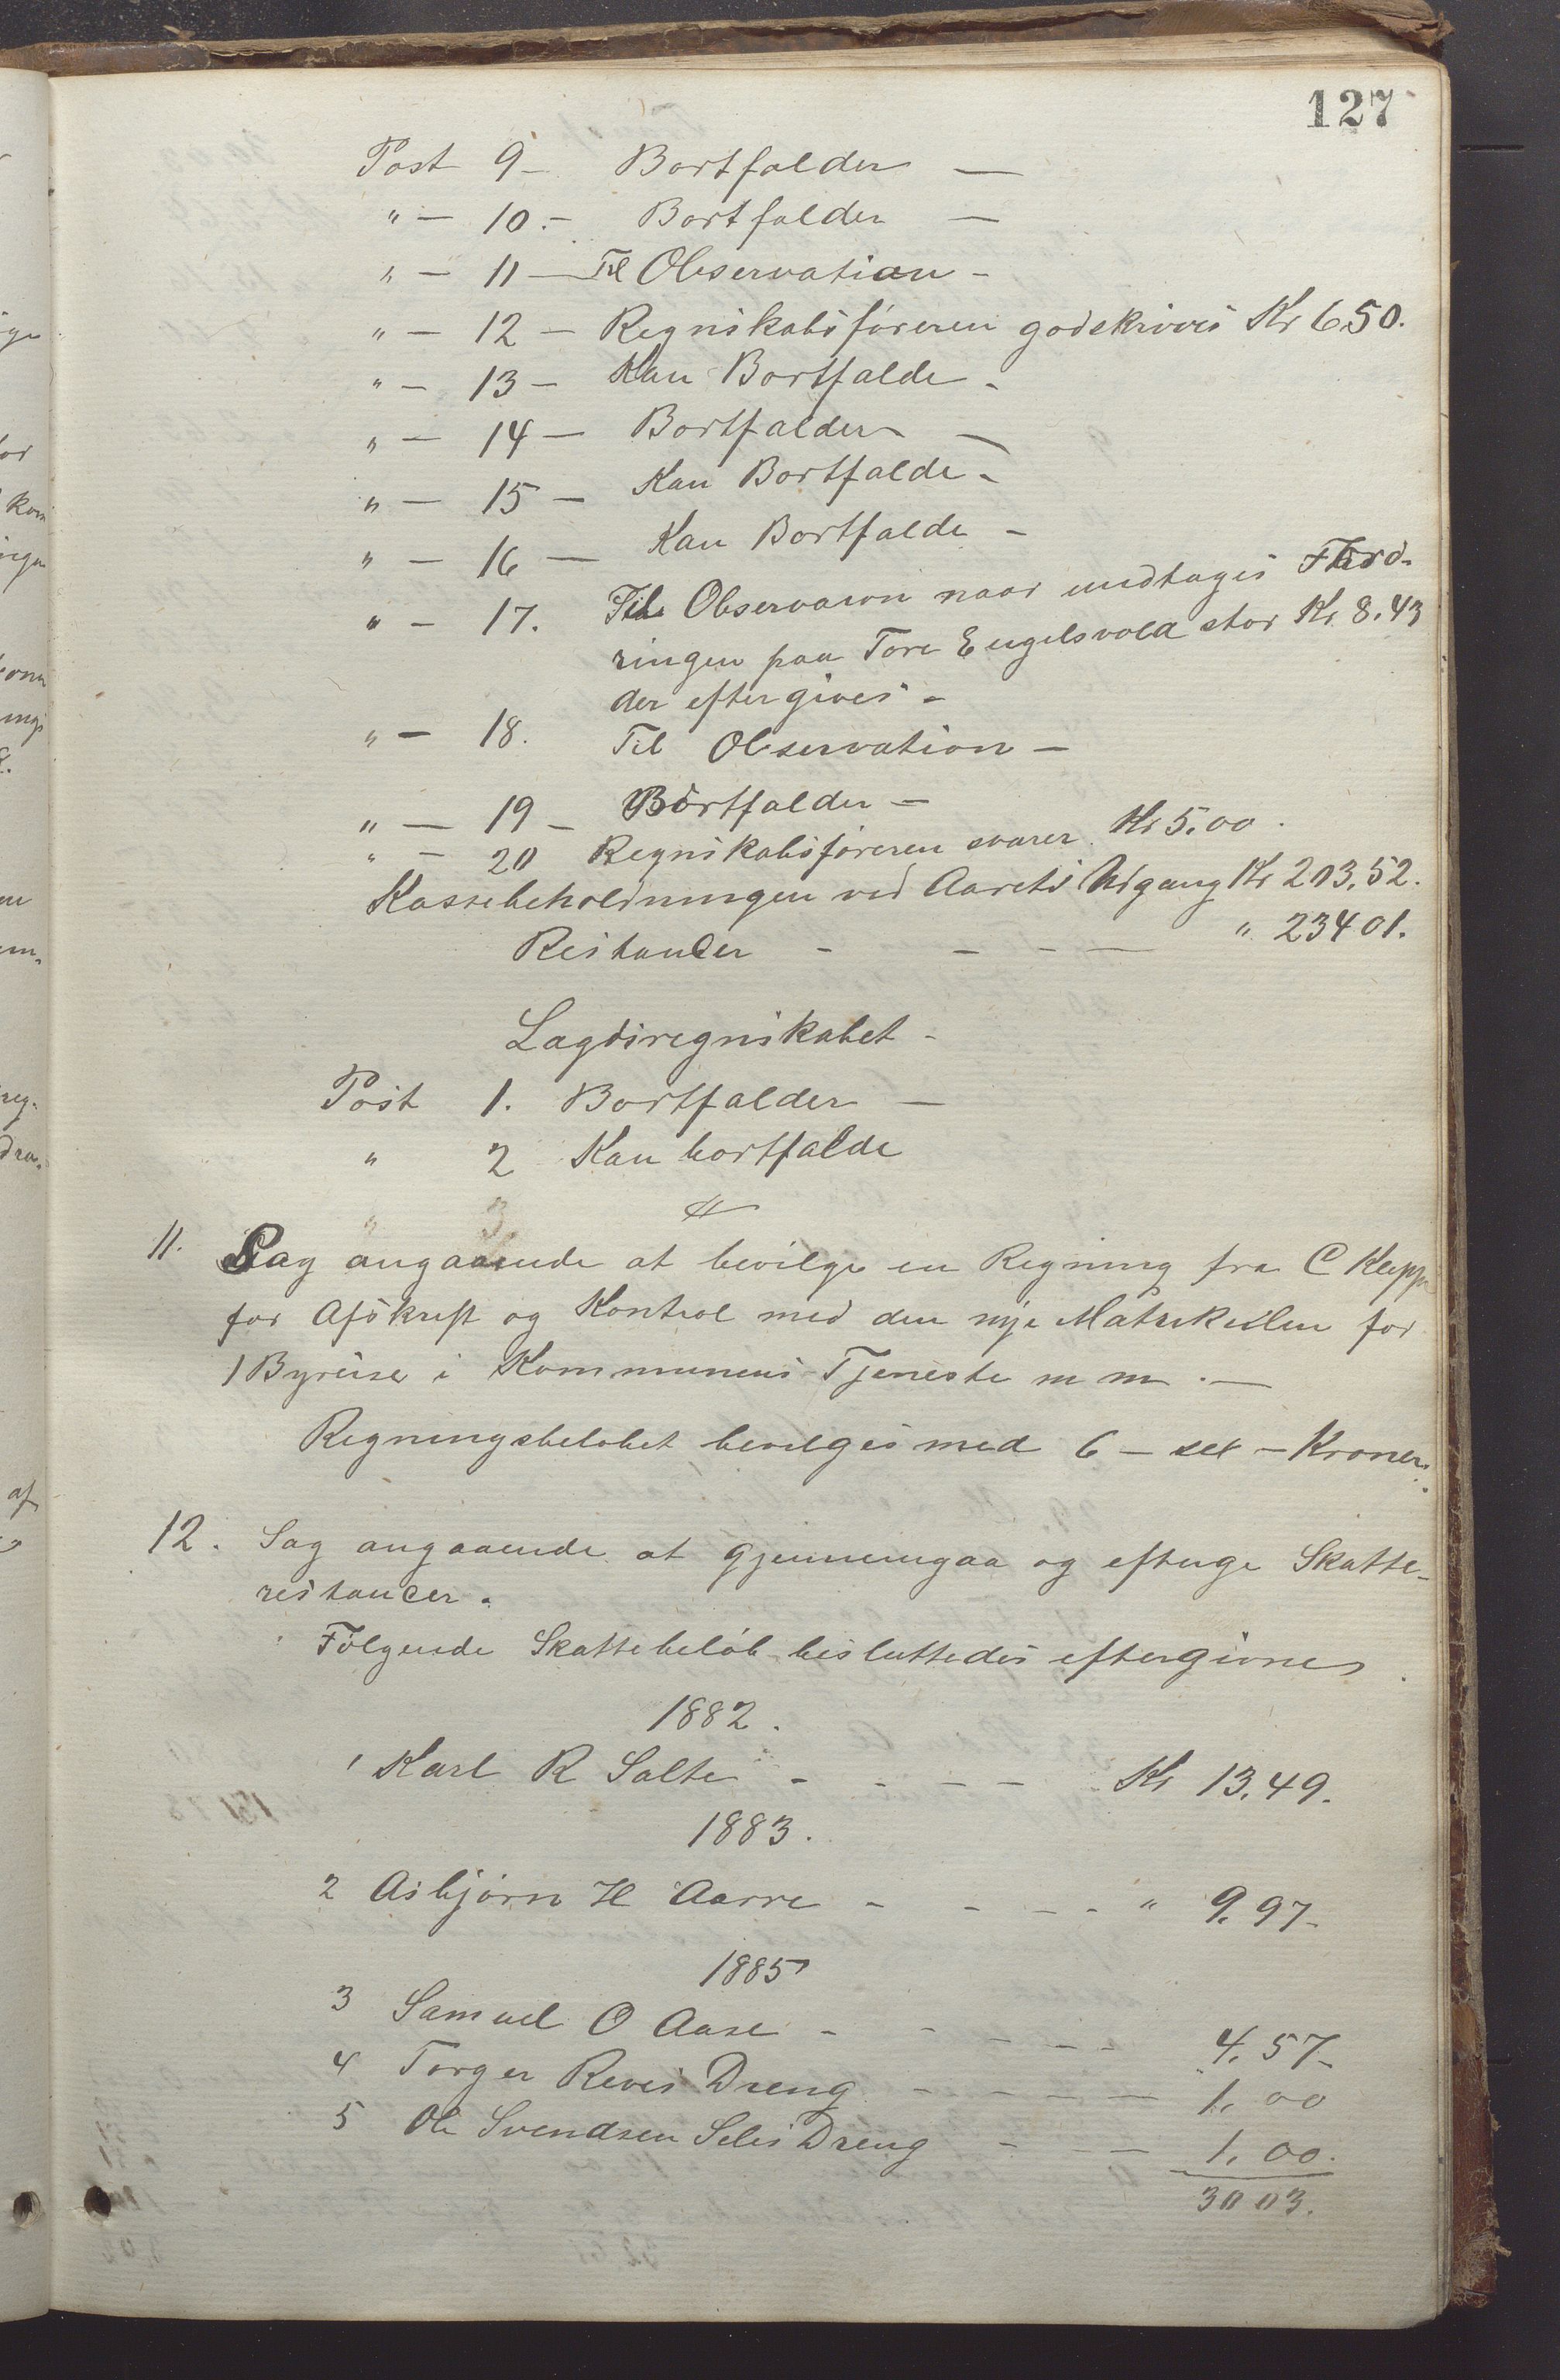 127
Post 9 – Bortfalder —
" — 10. – Bortfalder —
" — 11 — Til Observation –
" — 12 – Regnskabsføreren godskrives Kr 6.50.
" — 13 – Kan Bortfalde –
" — 14 — Bortfalder —
" — 15 — Kan Bortfalde –
" — 16 — Kan Bortfalde –
" — 17. Til Observaion naar undtages Ford-
ringen paa Tore Engelsvold stor Kr. 8.43
der eftergives –
" — 18. Til Observation —
" — 19 – Bortfalder –
" — 20 Regnskabsføreren svarer Kr 5.00.
Kassebeholdningen ved Aarets Udgang Kr 203,52.
Restancer – – – — " 23401.
Lagdsregnskabet –
Post 1. Bortfalder —
" 2 Kan bortfalde
" 3
11. Sag angaaende at bevilge en Regning fra C Klepp
for Afskrift og Kontrol med den nye Matrikulen for
1 Byreise i Kommunens Tjeneste m m. —
Regningsbeløbet bevilges med 6 – sex – Kroner.
12. Sag angaaende at gjennemgaa og efterge Skatte-
restancer.
Følgende Skattebeløb besluttedes eftergivne
1882.
1 Karl R Salte – – – – Kr 13.49.
1883.
2 Asbjørn H Aarre – – – – " 9.97 –
1885
3 Samuel O Aase – – – – – 4.57 –
4 Torger Reves Dreng – – – – — 1.00
5 Ole Svendsen Seles Dreng – – — 1.00.
3003.